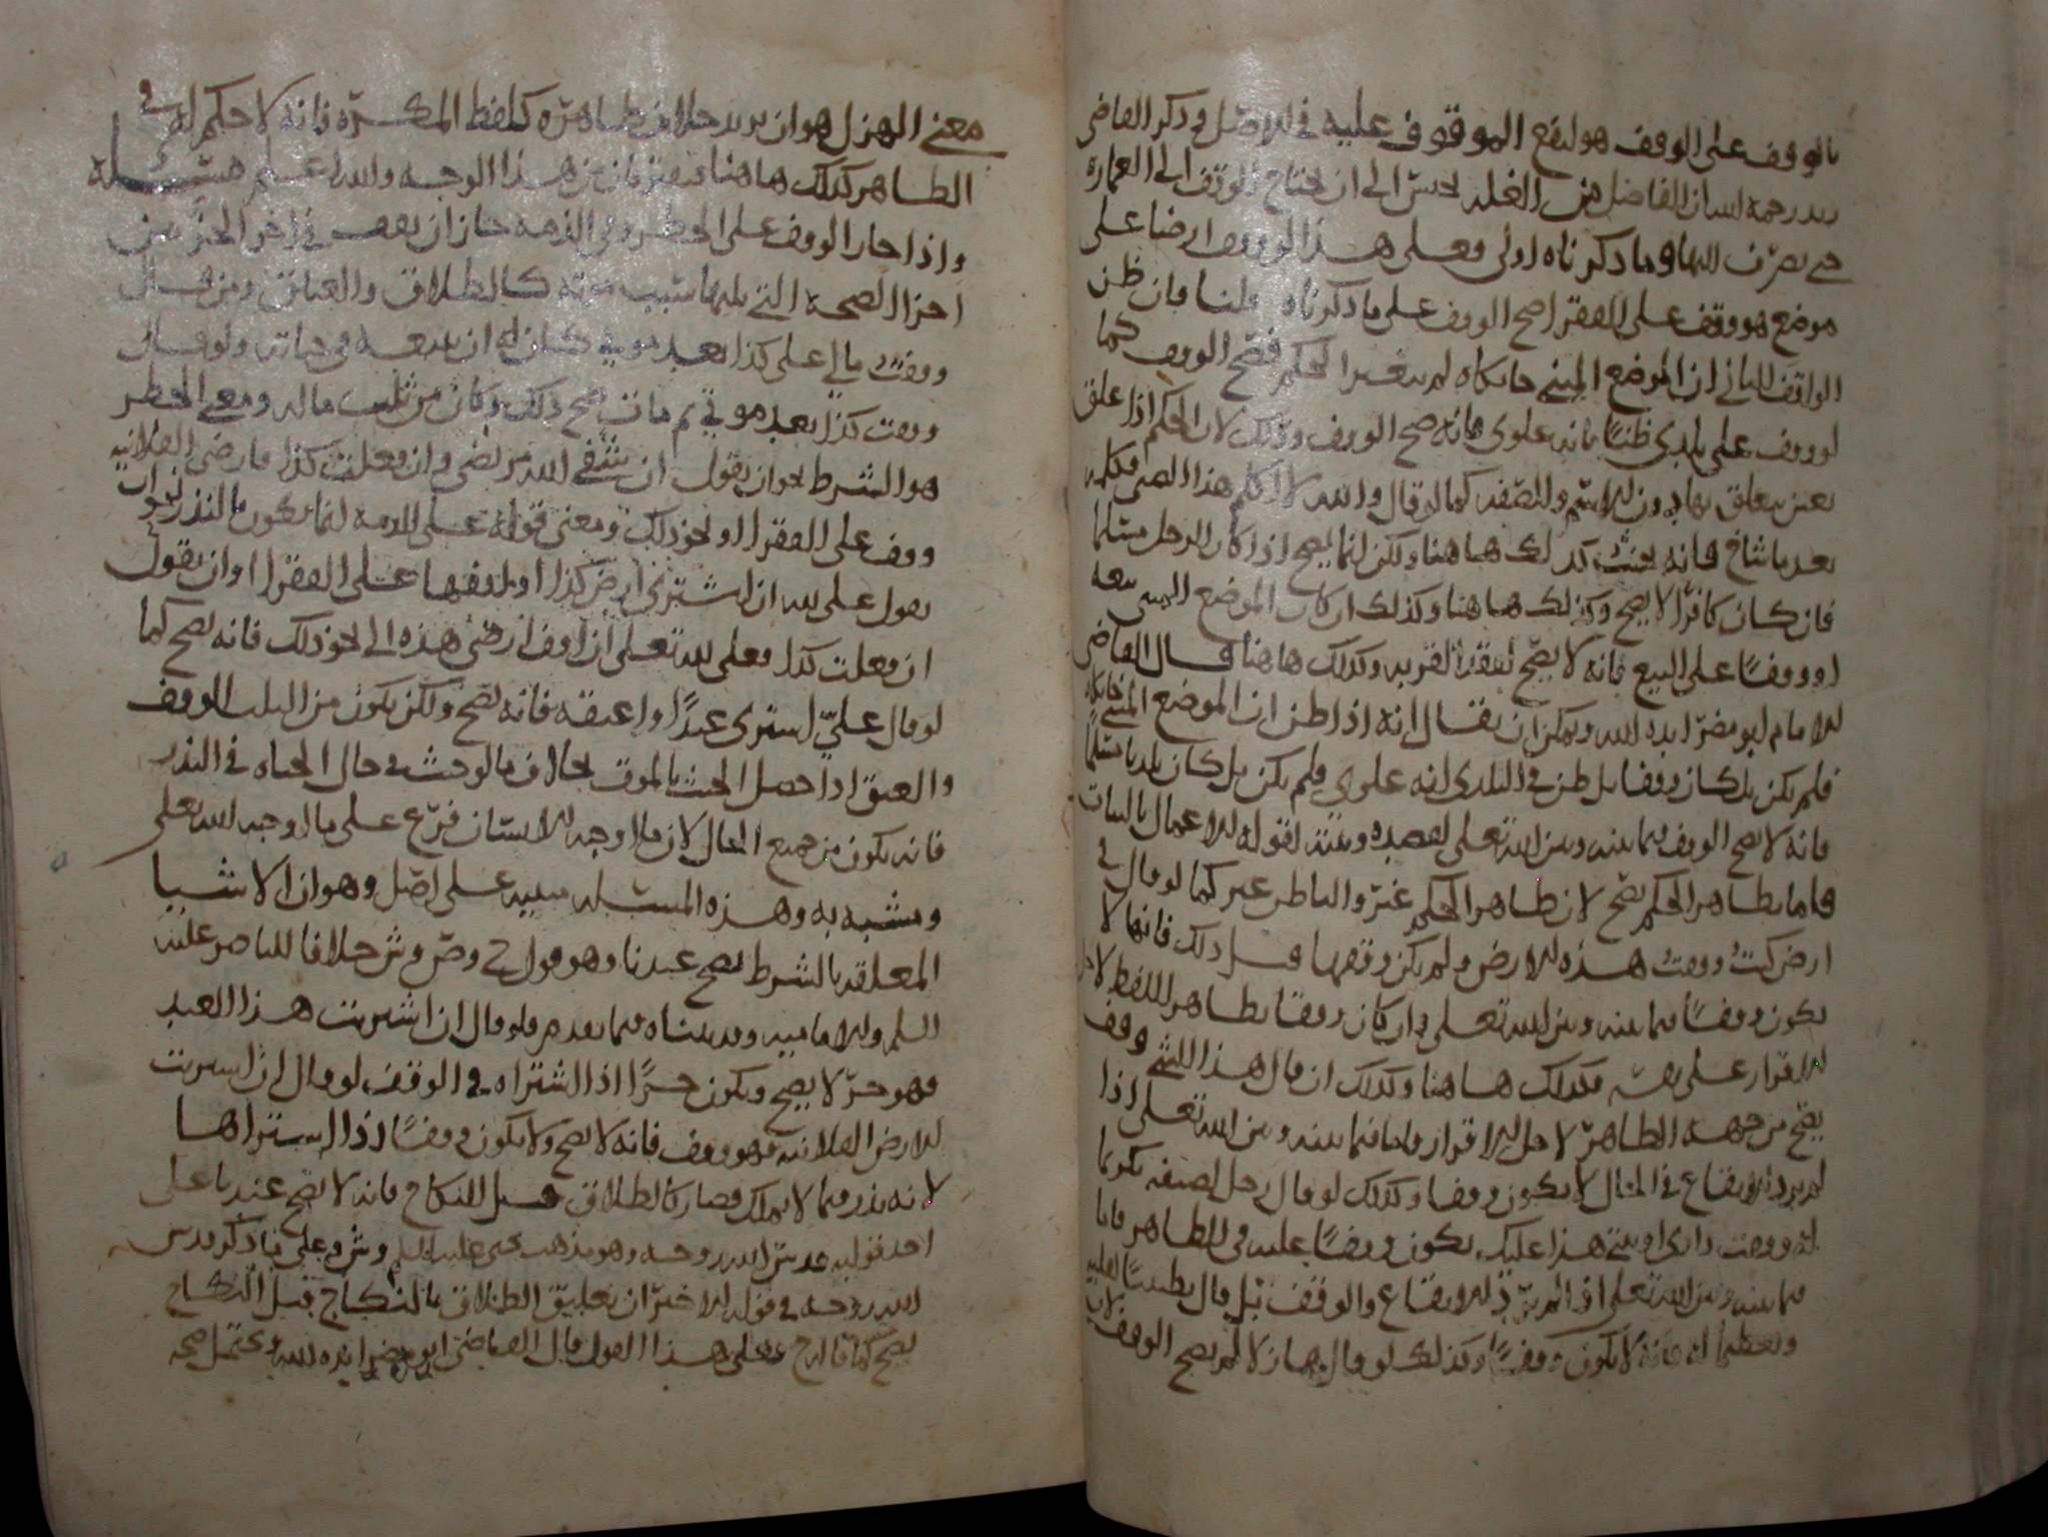 بالوقف على الوقف هو لنفع الموقوف عليه في الاصل وذكر القاضي
رحمه الله ان الفاضل من الغلة يحبس الى ان يحتاج الوقف الى العمارة
حتى يصرف اليها وما ذكرناه اولى وعلى هذا لو وقف ارضا على
موضع هو وقف على الفقراء صح الوقف على ما ذكرناه قلنا فان ظن
الواقف الثاني ان الموضع المبني خانكاه لم يتغير الحكم فصح الوقف كما
لو وقف على بلدي ظنا بانه علوي فانه صح الوقف وذلك لان الحكم اذا علق
بعين يتعلق بها دون الاسم والصفة كما لو قال والله لا اكلم هذا الصبي فكلمه
بعد ما شاخ فانه يحنث كذلك هاهنا ولكن انما يصح اذا كان الرجل مسلما
فان كان كافرا لا يصح وكذلك هاهنا وكذلك ان كان الموضع المبني بيعه
او وقفا على البيع فانه لا يصح لفقد القربة وكذلك هاهنا قال القاضي
الامام ابو مضر ايده الله ويمكن ان يقال انه اذا ظن ان الموضع المبني خانكاه
فلم يكن بل كان وقفا بل ظن في البلدي انه علوي فلم يكن بل كان بلديا مسلما
فانه لا يصح الوقف فيما بينه وبين الله تعلى لقصده ونيته لقوله الاعمال بالنيات
فاما بظاهر الحكم يصح لان ظاهر الحكم غير والباطن غير كما لو قال في
ارض كنت وقفت هذه الارض ولم يكن وقفها قبل ذلك فانها لا
يكون وقفا فيما بينه وبين الله تعلى وان كان وقفا بظاهر اللفظ لاجل
الاقرار على نفسه فكذلك هاهنا وكذلك ان قال هذا الشي وقف
يصح من جهة الظاهر لاجل الاقرار فاما فيما بينه وبين الله تعلى اذا
لم يرد الايقاع في الحال لا يكون وقفا وكذلك لو قال رجل لضيفه تكريما
له وقفت داري او بيتي هذا عليك يكون وقفا عليه في الظاهر فاما
فيما بينه وبين الله تعلى اذا لم يرد الايقاع والوقف بل قال تطييبا لقلبه
وتعظيما له فانه لا يكون وقفا وكذلك لو قال هازلا لم يصح الوقف لان
معنى الهزل هو ان يريد خلاف ظاهره كلفظ المكره فانه لا حكم له في
الظاهر كذلك هاهنا من هذا الوجه والله اعلم مسئلة
واذا جاز الوقف على الخطر وفي الذمة جاز ان يقف في اخر الجز من
اجزا الصحة التي يليها سبب موته كالطلاق والعتاق ومن قال
وقفت مالي على كذا بعد موتي كان له ان يبيعه في حياته ولو قال
وقفت كذا بعد موتي ثم مات صح ذلك وكان من ثلث ماله ومعنى الخطر
هو الشرط نحو ان يقول ان شفى الله مريضي وان فعلت كذا فارضي الفلانية
وقف على الفقرا او نحو ذلك ومعنى قوله على الذمة انما يكون بالنذر نحو ان
يقول علي لله ان اشتري ارض كذا او اقفها على الفقرا او ان يقول
ان فعلت كذا فعلي لله تعلى ان اوقف ارضي هذه الى نحو ذلك فانه يصح كما
لو قال علي اشتري عبدا او اعتقه فانه يصح ولكن يكون من الثلث الوقف
والعتق اذا حصل الحنث بالموت بخلاف ما لو حنث في حال الحياة في النذر
فانه يكون من جميع المال لان ما اوجبه الانسان فرع على ما اوجبه الله تعلى
ومشبه به وهذه المسئله مبنيه على اصل وهو ان الاشيا
المعلقه بالشرط يصح عندنا وهو قول ح وص وش خلافا للناصر عليه
السلم والامامية وقد بيناه فيما تقدم فلو قال ان اشتريت هذا العبد
فهو حر لا يصح ويكون حرا اذا اشتراه في الوقف لو قال ان اشتريت
الارض الفلانيه فهو وقف فانه لا يصح ولا يكون وقفا اذا اشتراها
لانه نذر فيما لا يملك فصار كالطلاق قبل النكاح فانه لا يصح عندنا على
احد قوليه قدس الله روحه وهو مذهب يحيى عليه السلم وش وعلى ما ذكر قدس
الله روحه في قوله الاخر ان تعليق الطلاق بالنكاح قبل النكاح
يصح كما قال ح فعلى هذا القول قال القاضي ابو مضر ايده الله يحتمل صحه